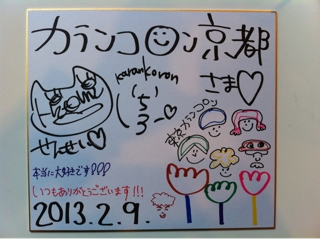 カランコロン京都
さま♡
karankoron
せんせい♡
東京カランコロン
本当に大好きです♡♡♡
いつもありがとうございます!!!
2013.2.9.